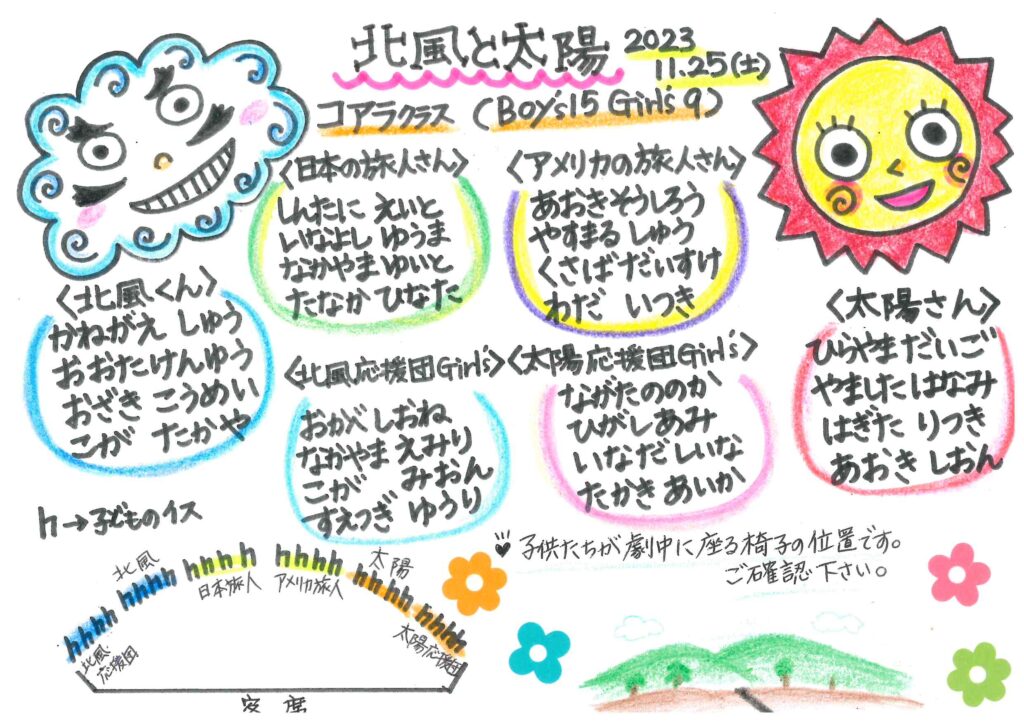 北風と太陽
2023
11.25(土)
コアラクラス (Boy's15 Girl's 9)
〈日本の旅人さん〉
しんたに えいと
いなよし ゆうま
なかやま ゆいと
たなか ひなた
〈アメリカの旅人さん〉
あおきそうしろう
やすまる しゅう
くさばだいすけ
わだ いつき
〈北風くん〉
かねがえ しゅう
おおたけんゆう
おざき こうめい
こが たかや
〈北風応援団Girl's〉
おかべ しおね
なかやま えみり
こが みおん
すえつぎ ゆうり
〈太陽応援団Girl's〉
ながたののか
ひがしあみ
いなだしいな
たかき あいか
〈太陽さん〉
ひらやまだいご
やましたはなみ
はぎた りつき
あおき しおん
h→子どものイス
北風
日本旅人
アメリカ旅人
太陽
北風応援団
太陽応援団
客席
子供たちが劇中に座る椅子の位置です。
ご確認下さい。